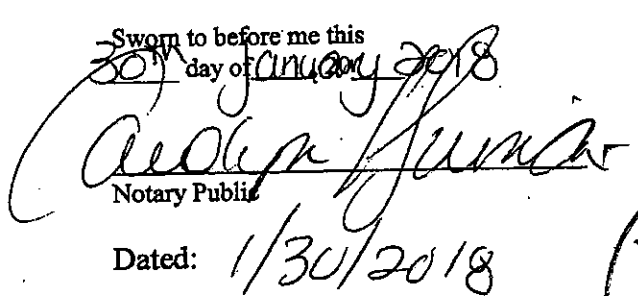 Sworn to before me this
30th day of January 2018
Notary Public
Dated: 1/30/2018